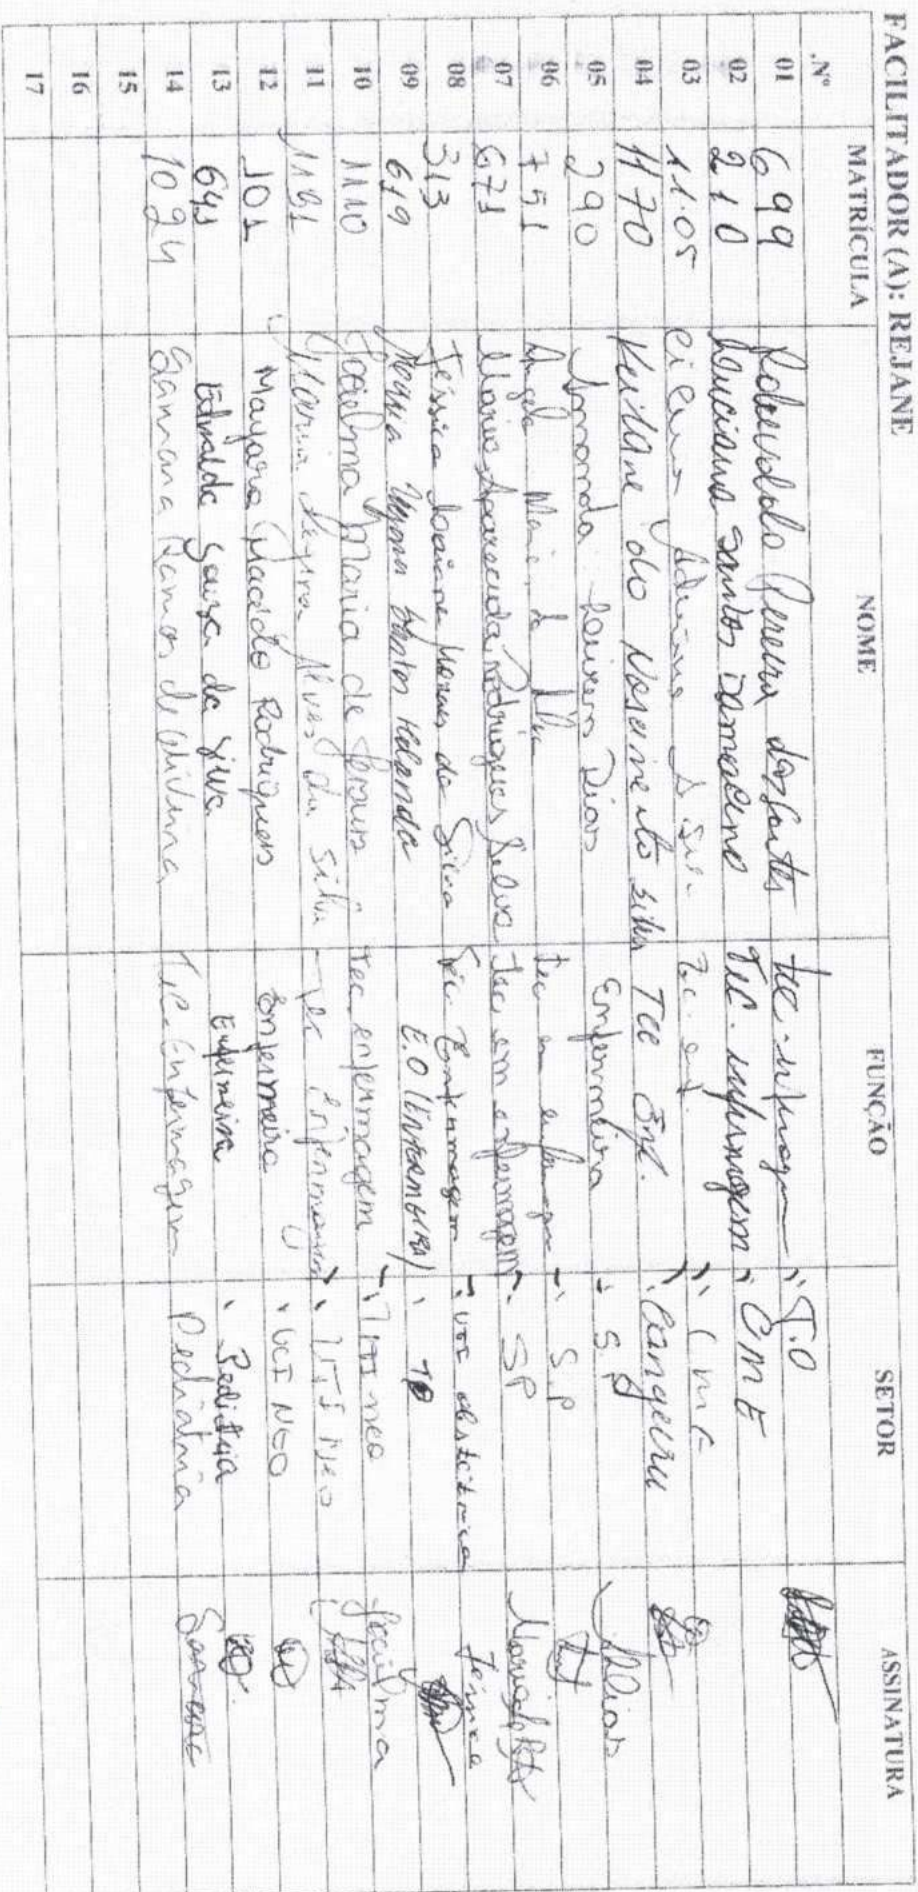 FACILITADOR (A): REJANE
Nº MATRÍCULA NOME FUNÇÃO SETOR ASSINATURA
01 699 Pereira dos Santos Tec. T.O
02 210 Luciana Santos Damasceno Tec. enfermagem CME
03 1105 Adriana Tec. enf. CME
04 1170 Keiliane do Nascimento Silva Tec Enf. Canguru
05 290 Amanda Loureiro Dias Enfermeira S.P
06 751 Angela Maria da Silva Tec em enfermagem S.P
07 671 Maria Aparecida Rodrigues Silva Tec em enfermagem SP
08 313 Jéssica Morais da Silva Téc. Enfermagem UTI obstétrica Jéssica
09 619 Bastos Holanda E.O (ENFERMEIRA)
10 1110 Jocielma Maria de Tec. enfermagem UTI neo Jocielma
11 1181 Maria Alves da Silva Tec enfermagem UTI Neo
12 101 Mayara Macêdo Rodrigues Enfermeira UCI NEO
13 641 Edvalda Souza da Silva Enfermeira Pediatria
14 1024 Samara Ramos de Oliveira Tec. Enfermagem Pediatria Samara
15
16
17